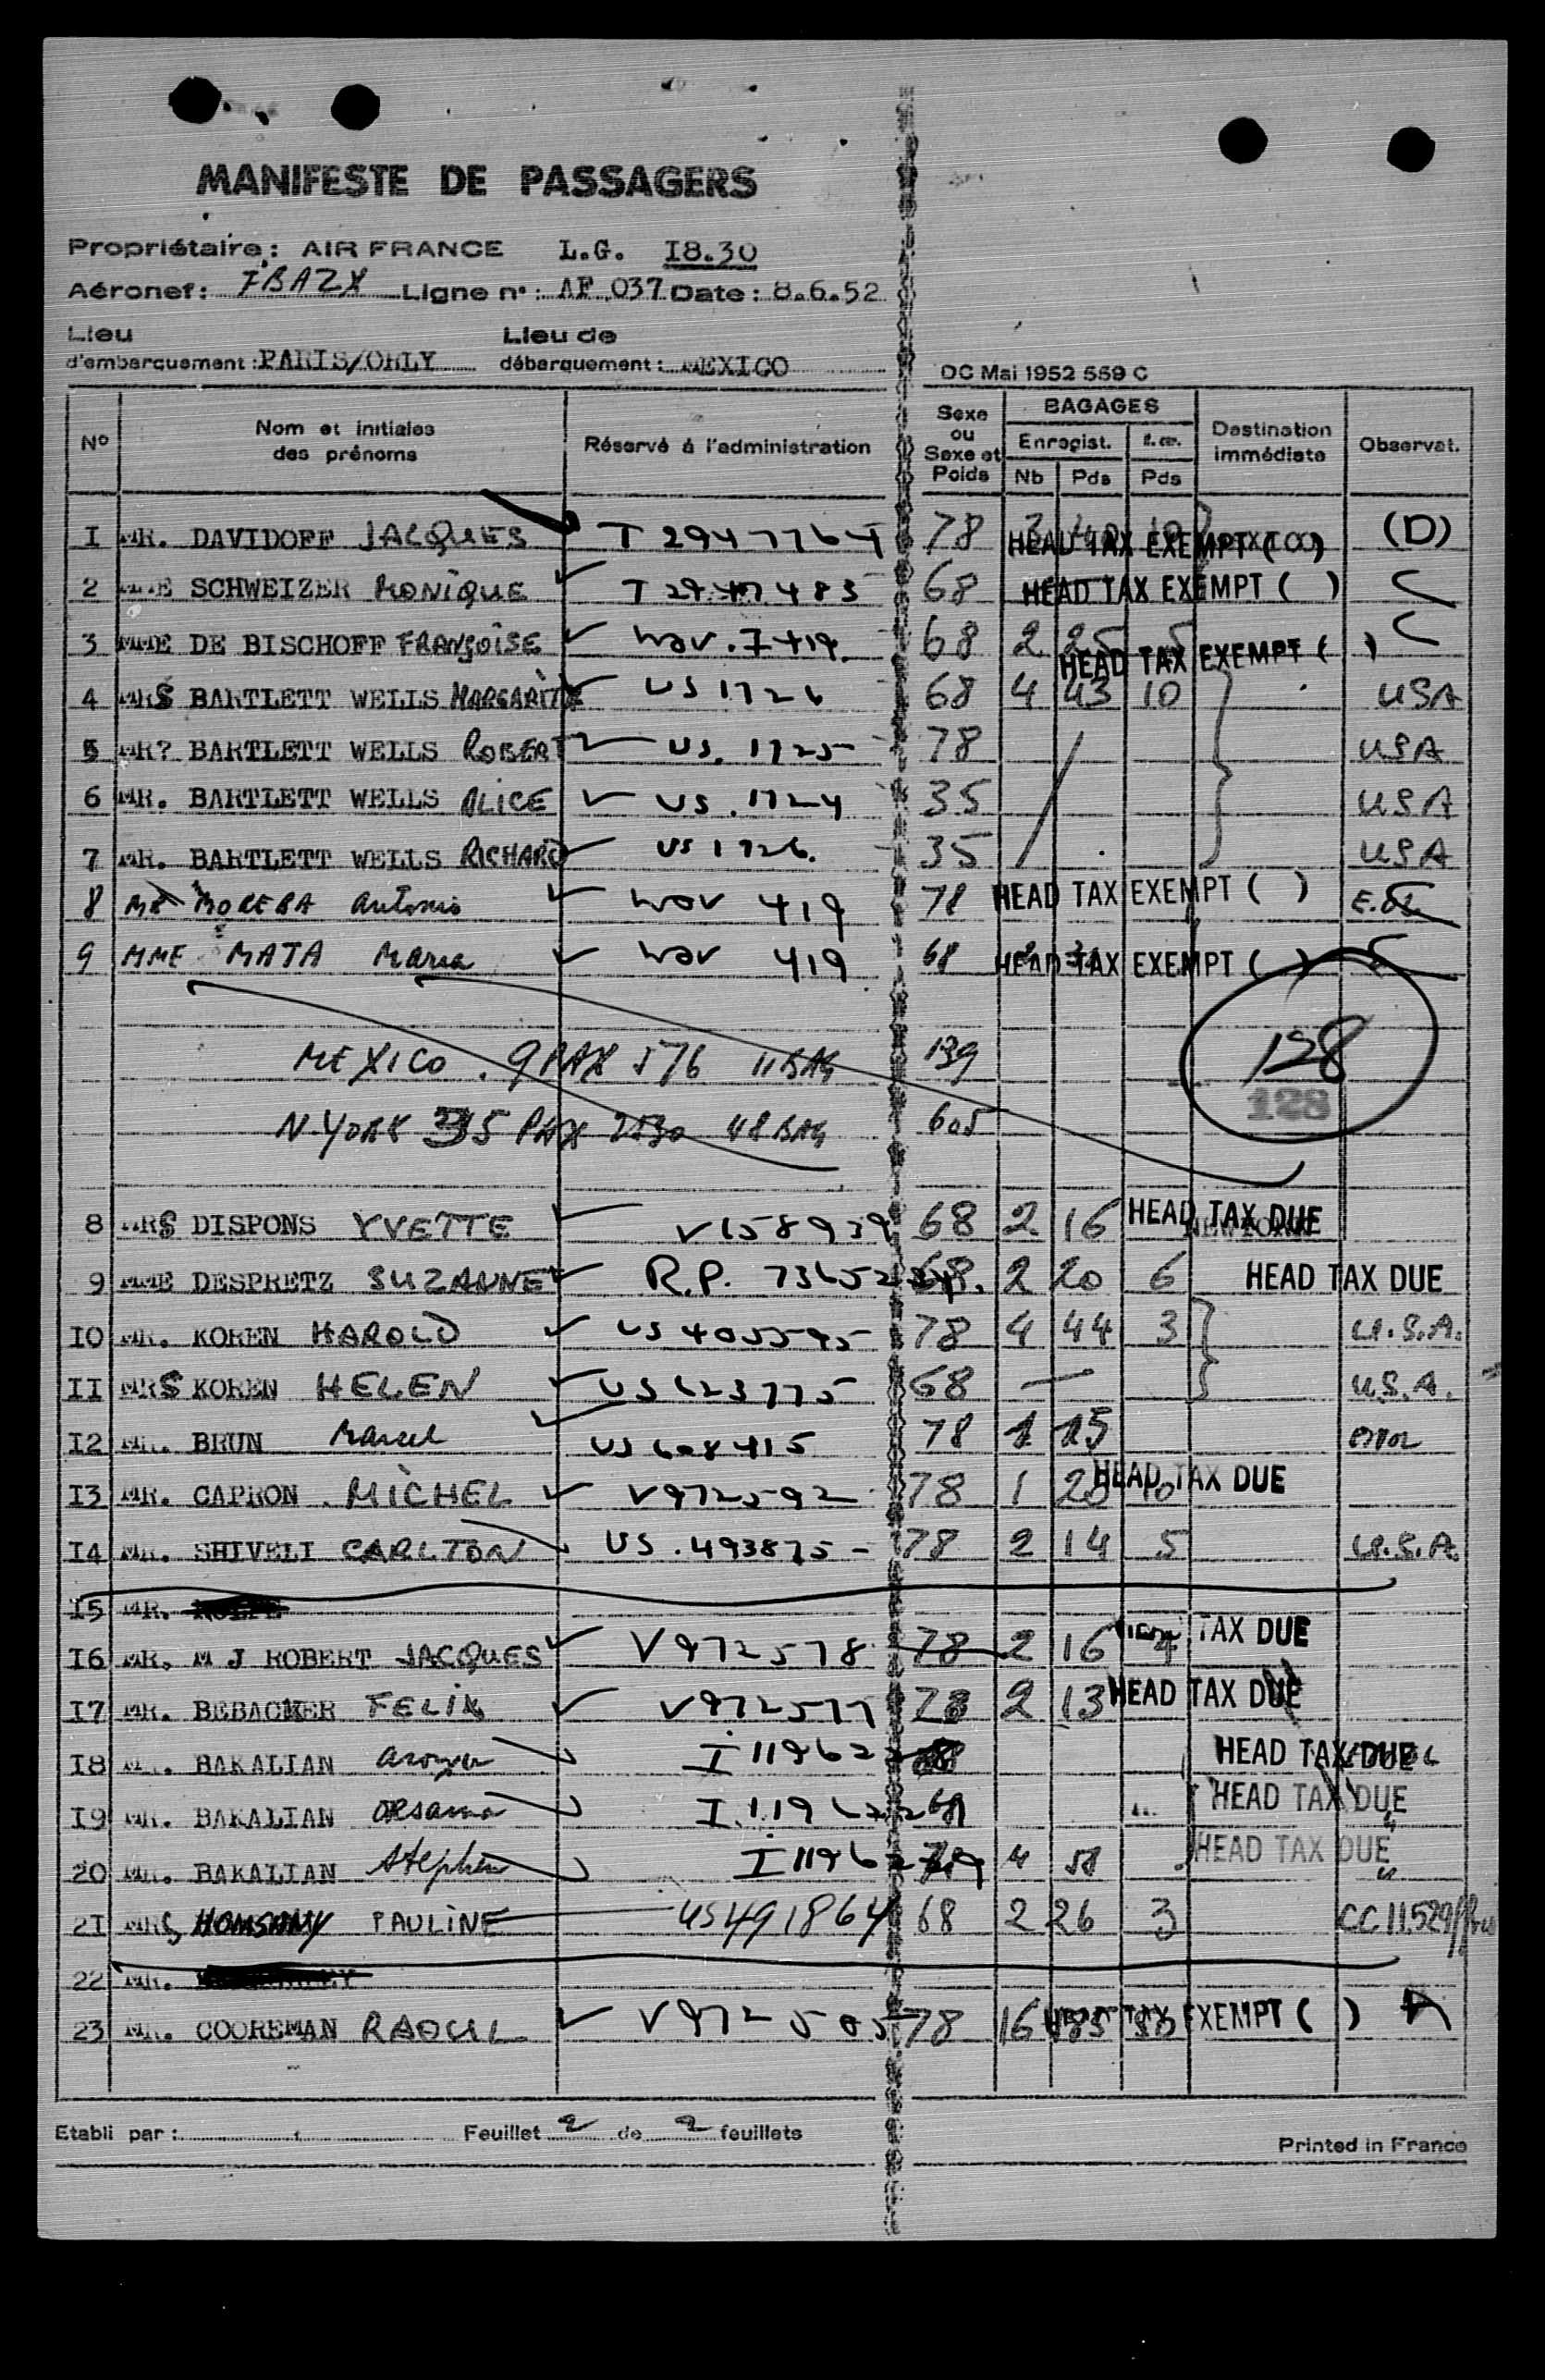 MANIFESTE DE PASSAGERS
Propriétaire: AIR FRANCE L.G. I8.30
Aéronef: FBAZX Ligne n°: AF 037 Date: 8.6.52
Lieu d'embarquement: PARIS/ORLY Lieu de débarquement: MEXICO
DC Mai 1952 559 C
N° Nom et initiales des prénoms Réservé à l'administration Sexe ou Sexe et Poids BAGAGES Enregist. Nb Pds Pds Destination immédiate Observat.
I MR. DAVIDOFF JACQUES T 2947764 78 HEAD TAX EXEMPT ( ) (D)
2 MME SCHWEIZER MONIQUE T 2947483 68 HEAD TAX EXEMPT ( )
3 MME DE BISCHOFF FRANÇOISE 68 2 25 5 HEAD TAX EXEMPT ( )
4 MRS BARTLETT WELLS US 1726 68 4 43 10 USA
5 MR? BARTLETT WELLS ROBERT US. 1725 78 USA
6 MR. BARTLETT WELLS ALICE US. 1724 35 USA
7 MR. BARTLETT WELLS RICHARD US 1726. 35 USA
8 MR MOREBA Antonio 419 78 HEAD TAX EXEMPT ( )
9 MME MATA Maria 419 68 HEAD TAX EXEMPT ( )
128
MEXICO. 9 PAX 576 11 BAG 139
128
N.YORK 15 PAX 48 BAG 605
8 MRS DISPONS YVETTE V158939 68 2 16 HEAD TAX DUE
9 MME DESPRETZ SUZANNE R.P. 68 2 20 6 HEAD TAX DUE
IO MR. KOREN HAROLD US 405595 78 4 44 3 U.S.A.
II MRS KOREN HELEN US 623775 68 U.S.A.
I2 MR. BRUN Marcel US 608415 78 1 15
I3 MR. CAPRON MICHEL V972592 78 1 20 HEAD TAX DUE
I4 MR. SHIVELI CARLTON US.493875 - 78 2 14 5 U.S.A.
I5 MR.
I6 MR. M J ROBERT JACQUES V972578 78 2 16 4 TAX DUE
I7 MR. BEBACKER FELIX V972577 78 2 13 HEAD TAX DUE
I8 BAKALIAN HEAD TAX DUE
I9 MR. BAKALIAN HEAD TAX DUE
20 MR. BAKALIAN Stephen 4 58 HEAD TAX DUE
2I MRS HOMSANY PAULINE US491864 68 2 26 3 CC 11.529
22 MR.
23 MR. COOREMAN RAOUL V972505 78 16 TAX EXEMPT ( )
Etabli par: Feuillet 2 de 2 feuillets
Printed in France